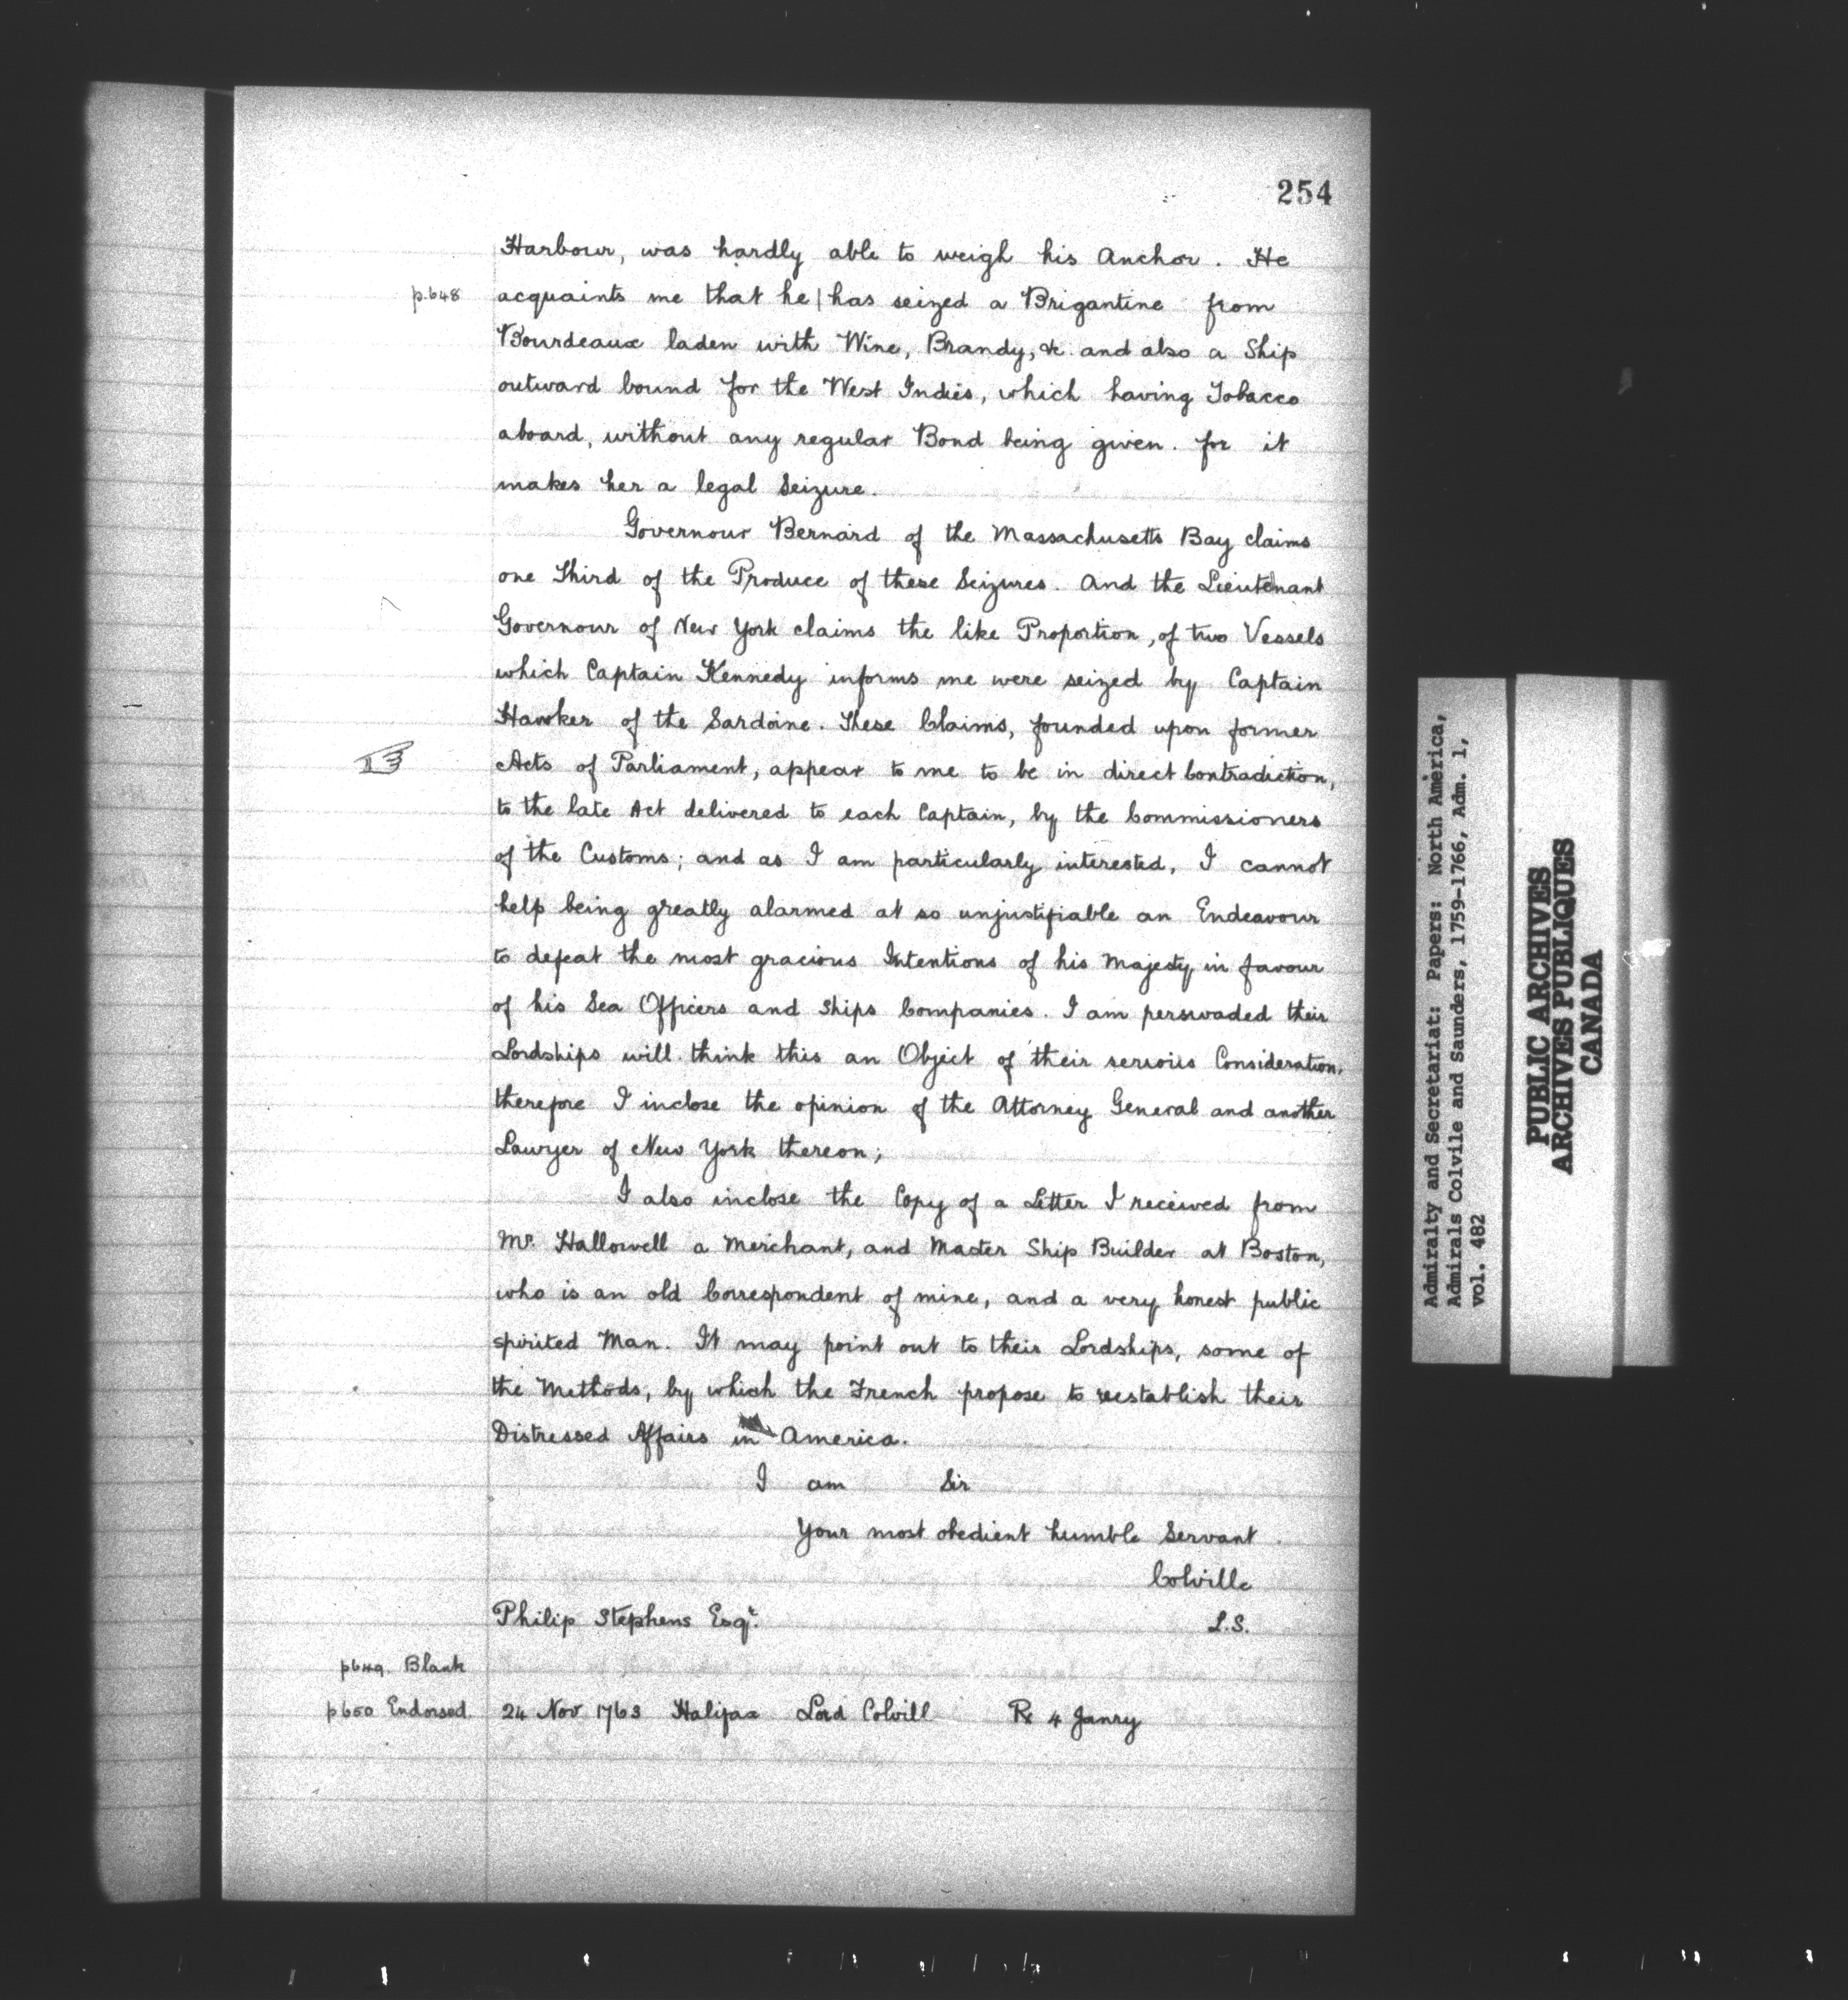 254
Harbour, was hardly able to weigh his Anchor. He
p.648 acquaints me that he | has seized a Brigantine from
Bourdeaux laden with Wine, Brandy, &c. and also a Ship
outward bound for the West Indies, which having Tobacco
aboard, without any regular Bond being given. for it
makes her a legal Seizure.
Governour Bernard of the Massachusetts Bay claims
one Third of the Produce of these Seizures. And the Lieutenant
Governour of New York claims the like Proportion, of two Vessels
which Captain Kennedy informs me were seized by Captain
Hawker of the Sardoine. These Claims, founded upon former
Acts of Parliament, appear to me to be in direct Contradiction,
to the late Act delivered to each Captain, by the Commissioners
of the Customs; and as I am particularly interested, I cannot
help being greatly alarmed at so unjustifiable an Endeavour
to defeat the most gracious Intentions of his Majesty in favour
of his Sea Officers and Ships Companies. I am perswaded their
Lordships will think this an Object of their serious Consideration,
therefore I inclose the opinion of the Attorney General and another
Lawyer of New York thereon;
I also inclose the Copy of a Letter I received from
Mr. Hallowell a Merchant, and Master Ship Builder at Boston,
who is an old Correspondent of mine, and a very honest public
spirited Man. It may point out to their Lordships, some of
the Methods, by which the French propose to reestablish their
Distressed Affairs in America.
I am Sir
Your most obedient humble Servant.
Colville
Philip Stephens Esqr. L.S.
p649. Blank
p650 Endorsed 24 Nov 1763 Halifax Lord Colvill Rx 4 Janry
Admiralty and Secretariat: Papers: North America,
Admirals Colvile and Saunders, 1759-1766, Adm. 1,
vol. 482
PUBLIC ARCHIVES
ARCHIVES PUBLIQUES
CANADA